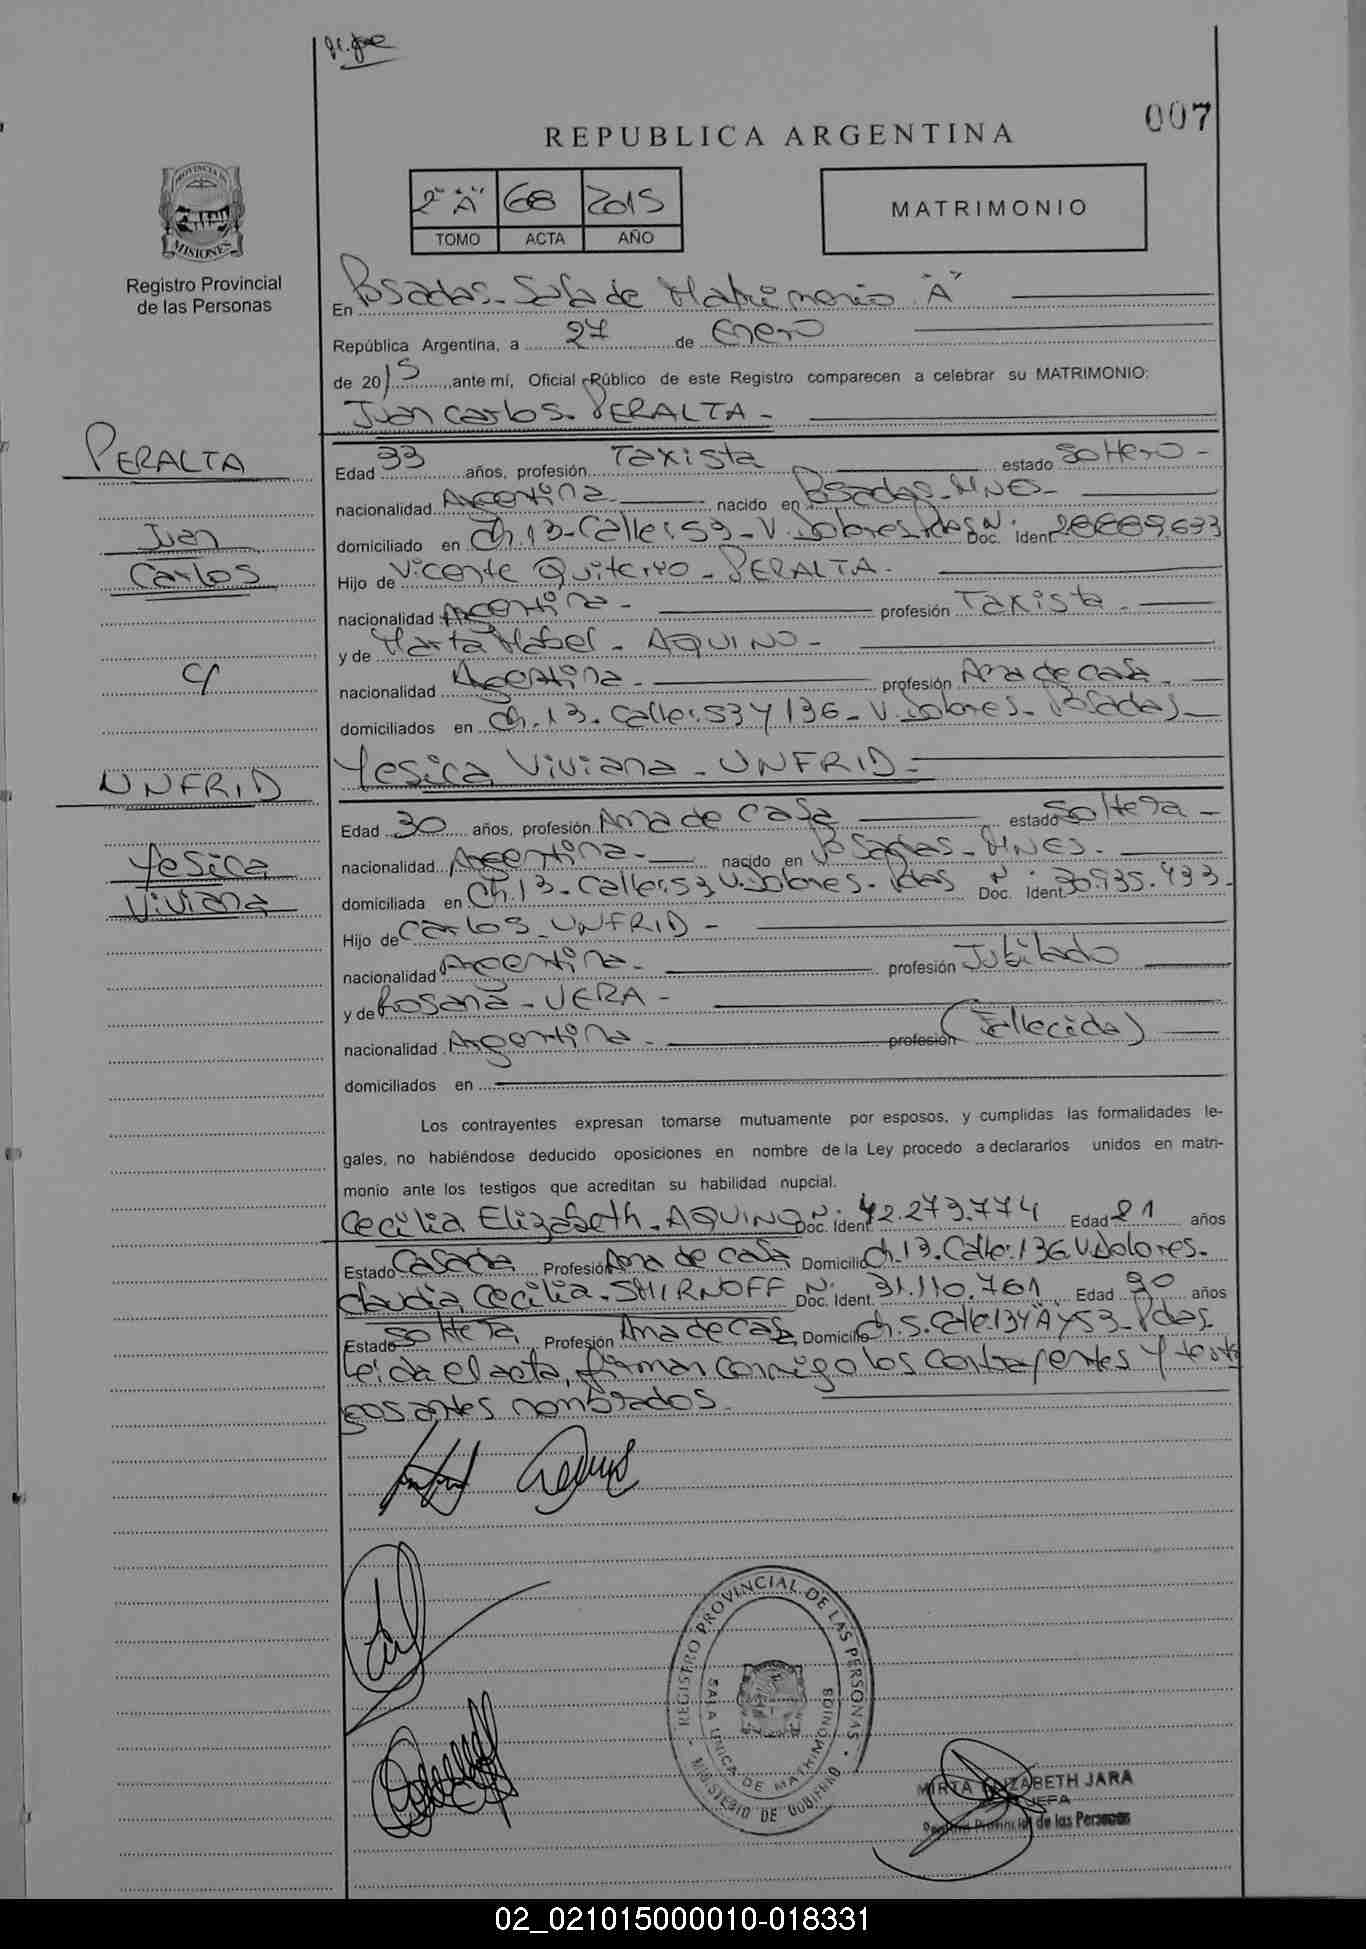 007
REPUBLICA ARGENTINA
2º "A" 68 2015
TOMO ACTA AÑO
MATRIMONIO
PROVINCIA DE
MISIONES
Registro Provincial
de las Personas
En Posadas - Sala de Matrimonio "A"
República Argentina, a 27 de Enero
de 2015, ante mí, Oficial Público de este Registro comparecen a celebrar su MATRIMONIO:
Juan Carlos - PERALTA -
PERALTA
Juan
Carlos
c/
UNFRID
Yesica
Viviana
Edad 33 años, profesión Taxista estado Soltero -
nacionalidad Argentina - nacido en Posadas - MNES -
domiciliado en Ch. 13 - Calle: 53 - V. Dolores Pdas Nº Doc. Ident.
Hijo de Vicente Quiterio - PERALTA -
nacionalidad Argentina - profesión Taxista -
y de Marta Mabel - AQUINO -
nacionalidad Argentina - profesión Ama de casa -
domiciliados en Ch. 13 - Calle: 53 y 136 - V. Dolores - Posadas -
Yesica Viviana - UNFRID -
Edad 30 años, profesión Ama de casa estado Soltera -
nacionalidad Argentina - nacido en Posadas - MNES -
domiciliada en Ch. 13 - Calle: 53 V. Dolores - Pdas Nº Doc. Ident. 30.935.433 -
Hijo de Carlos - UNFRID -
nacionalidad Argentina - profesión Jubilado
y de Rosana - VERA -
nacionalidad Argentina - profesión (Fallecida)
domiciliados en
Los contrayentes expresan tomarse mutuamente por esposos, y cumplidas las formalidades le-
gales, no habiéndose deducido oposiciones en nombre de la Ley procedo a declararlos unidos en matri-
monio ante los testigos que acreditan su habilidad nupcial.
Cecilia Elizabeth - AQUINO Nº Doc. Ident. 42.273.774 Edad 21 años
Estado Casada Profesión Ama de casa Domicilio Ch. 13 - Calle: 136 V. Dolores -
Claudia Cecilia - SMIRNOFF Nº Doc. Ident. 31.110.761 Edad 30 años
Estado Soltera Profesión Ama de casa Domicilio Ch. 5. Calle: 134 "A" y 53 - Pdas
leída el acta, firman conmigo los contrayentes y testi
gos antes nombrados.
REGISTRO PROVINCIAL DE LAS PERSONAS
SALA UNICA DE MATRIMONIOS
MINISTERIO DE GOBIERNO
MIRTA ELIZABETH JARA
JEFA
Registro Provincial de las Personas
02_021015000010-018331